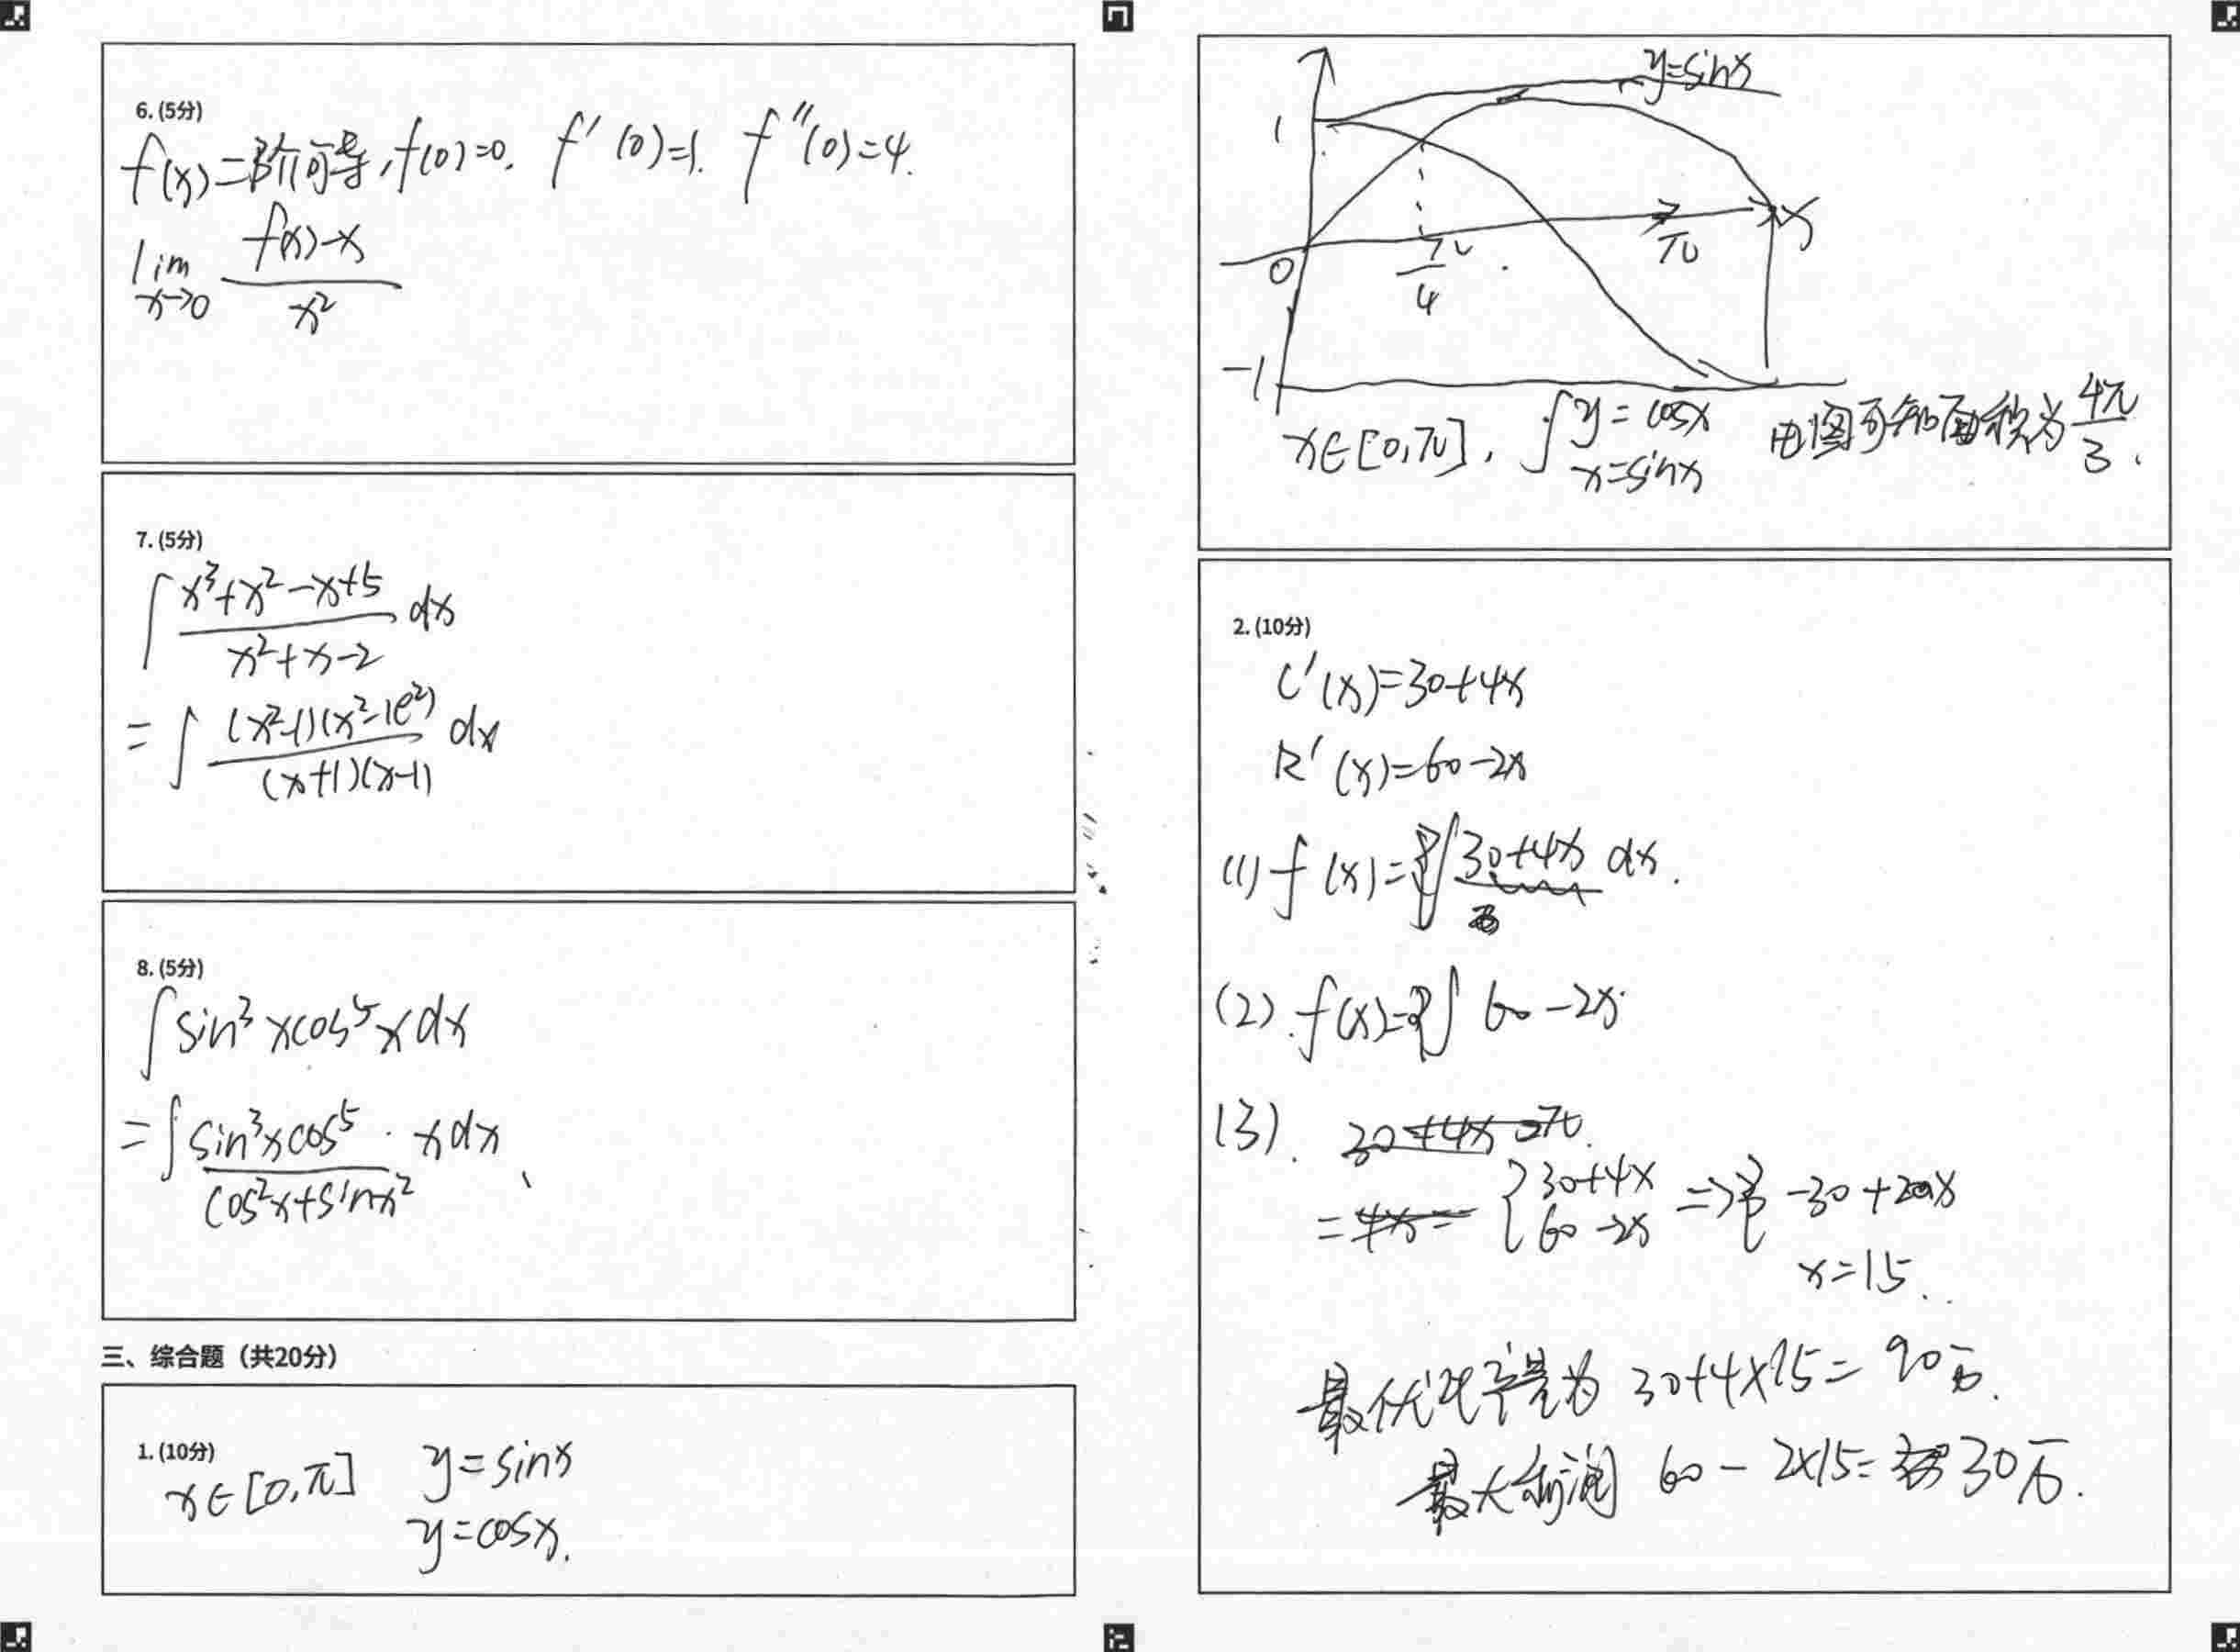 6. (5分)
f(x)二阶可导,f(0)=0. f'(0)=1. f''(0)=4.
lim x→0 (f(x)-x)/x²
7. (5分)
∫ (x³+x²-x+5)/(x²+x-2) dx
= ∫ (x²-1)(x²-1e²)/((x+1)(x-1)) dx
8. (5分)
∫ sin³xcos⁵x dx
= ∫ (sin³xcos⁵)/(cos²x+sinx²) · xdx
三、综合题（共20分）
1. (10分)
x∈[0,π] y=sinx
y=cosx.
y=sinx
1
0
π/4
π
x
-1
x∈[0,π], { y=cosx
x=sinx
由图可知面积为 4π/3.
2. (10分)
C'(x)=30+4x
R'(x)=60-2x
(1) f(x)=∫30+4x dx.
(2). f(x)=∫ 60-2x
(3).
= { 30+4x
60-2x => -30+20x
x=15.
30+4×15= 90万.
最大利润 60-2×15= 30万.